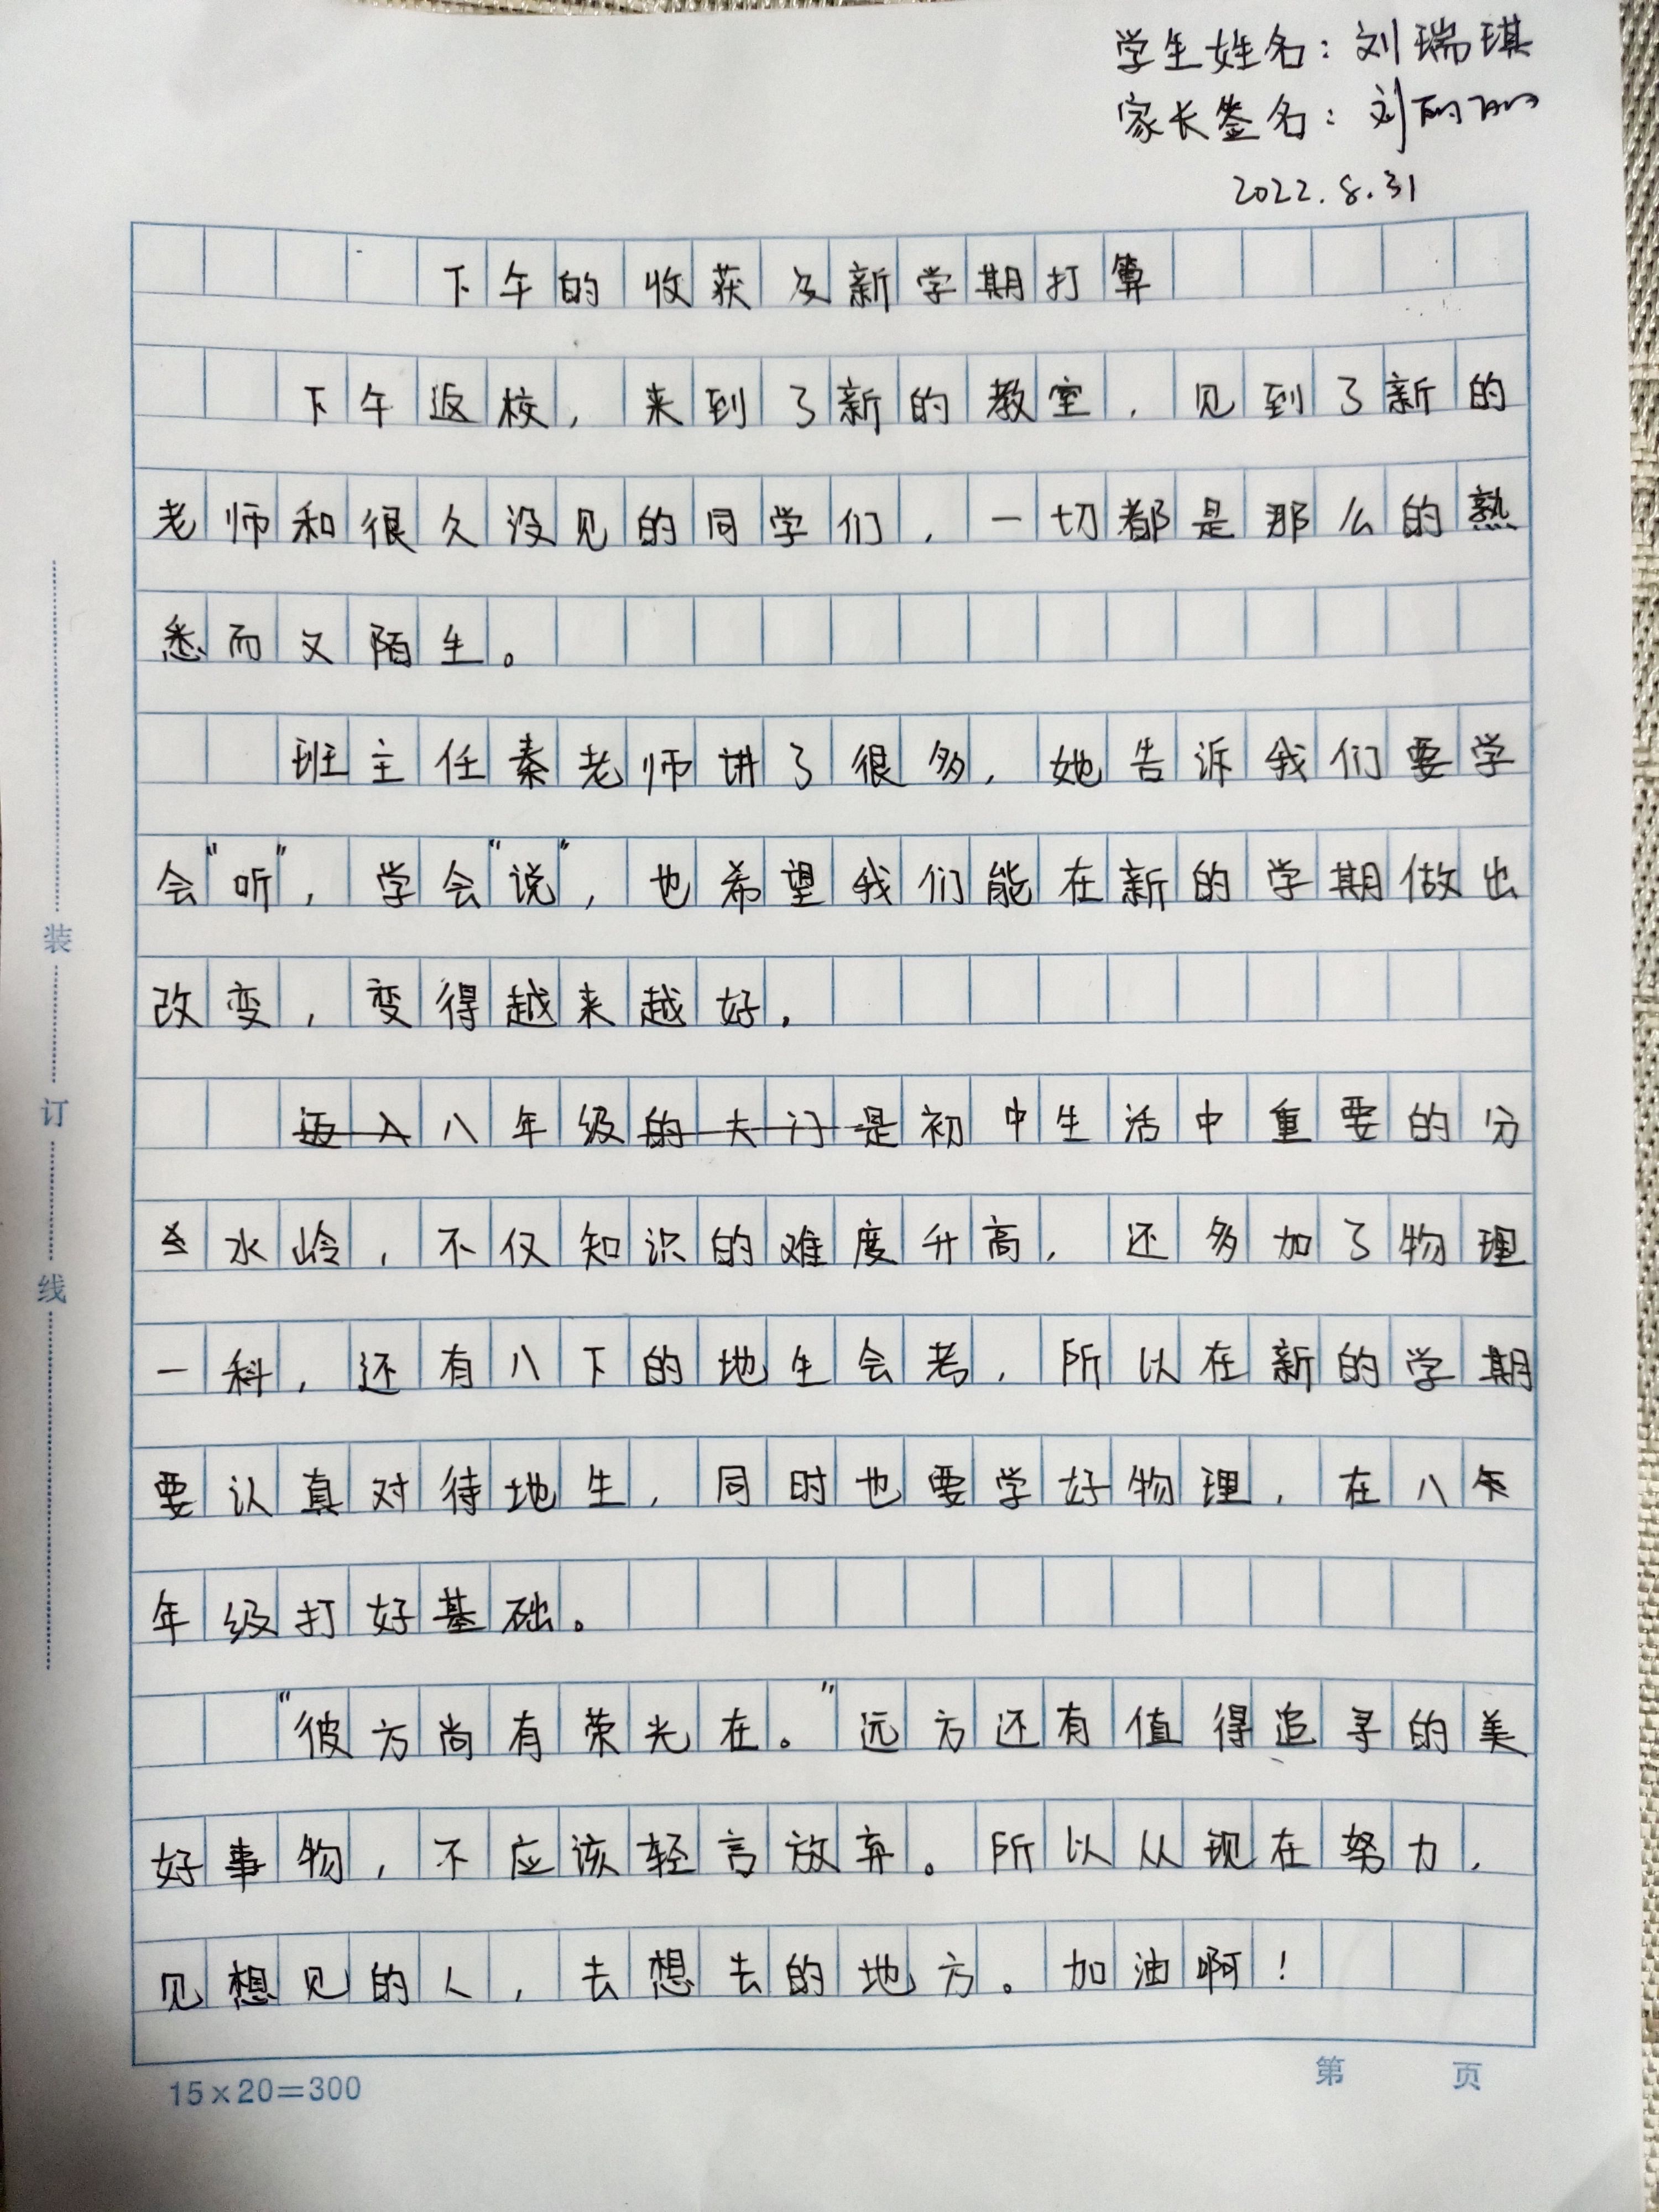 学生姓名：刘瑞琪
家长签名：刘丽丽
2022.8.31
下午的收获及新学期打算
下午返校，来到了新的教室，见到了新的
老师和很久没见的同学们，一切都是那么的熟
悉而又陌生。
班主任秦老师讲了很多，她告诉我们要学
会"听"，学会"说"，也希望我们能在新的学期做出
改变，变得越来越好。
迈入八年级的大门是初中生活中重要的分
水岭，不仅知识的难度升高，还多加了物理
一科，还有八下的地生会考，所以在新的学期
要认真对待地生，同时也要学好物理，在八
年级打好基础。
"彼方尚有荣光在。"远方还有值得追寻的美
好事物，不应该轻言放弃。所以从现在努力，
见想见的人，去想去的地方。加油啊！
装
订
线
15×20=300
第 页